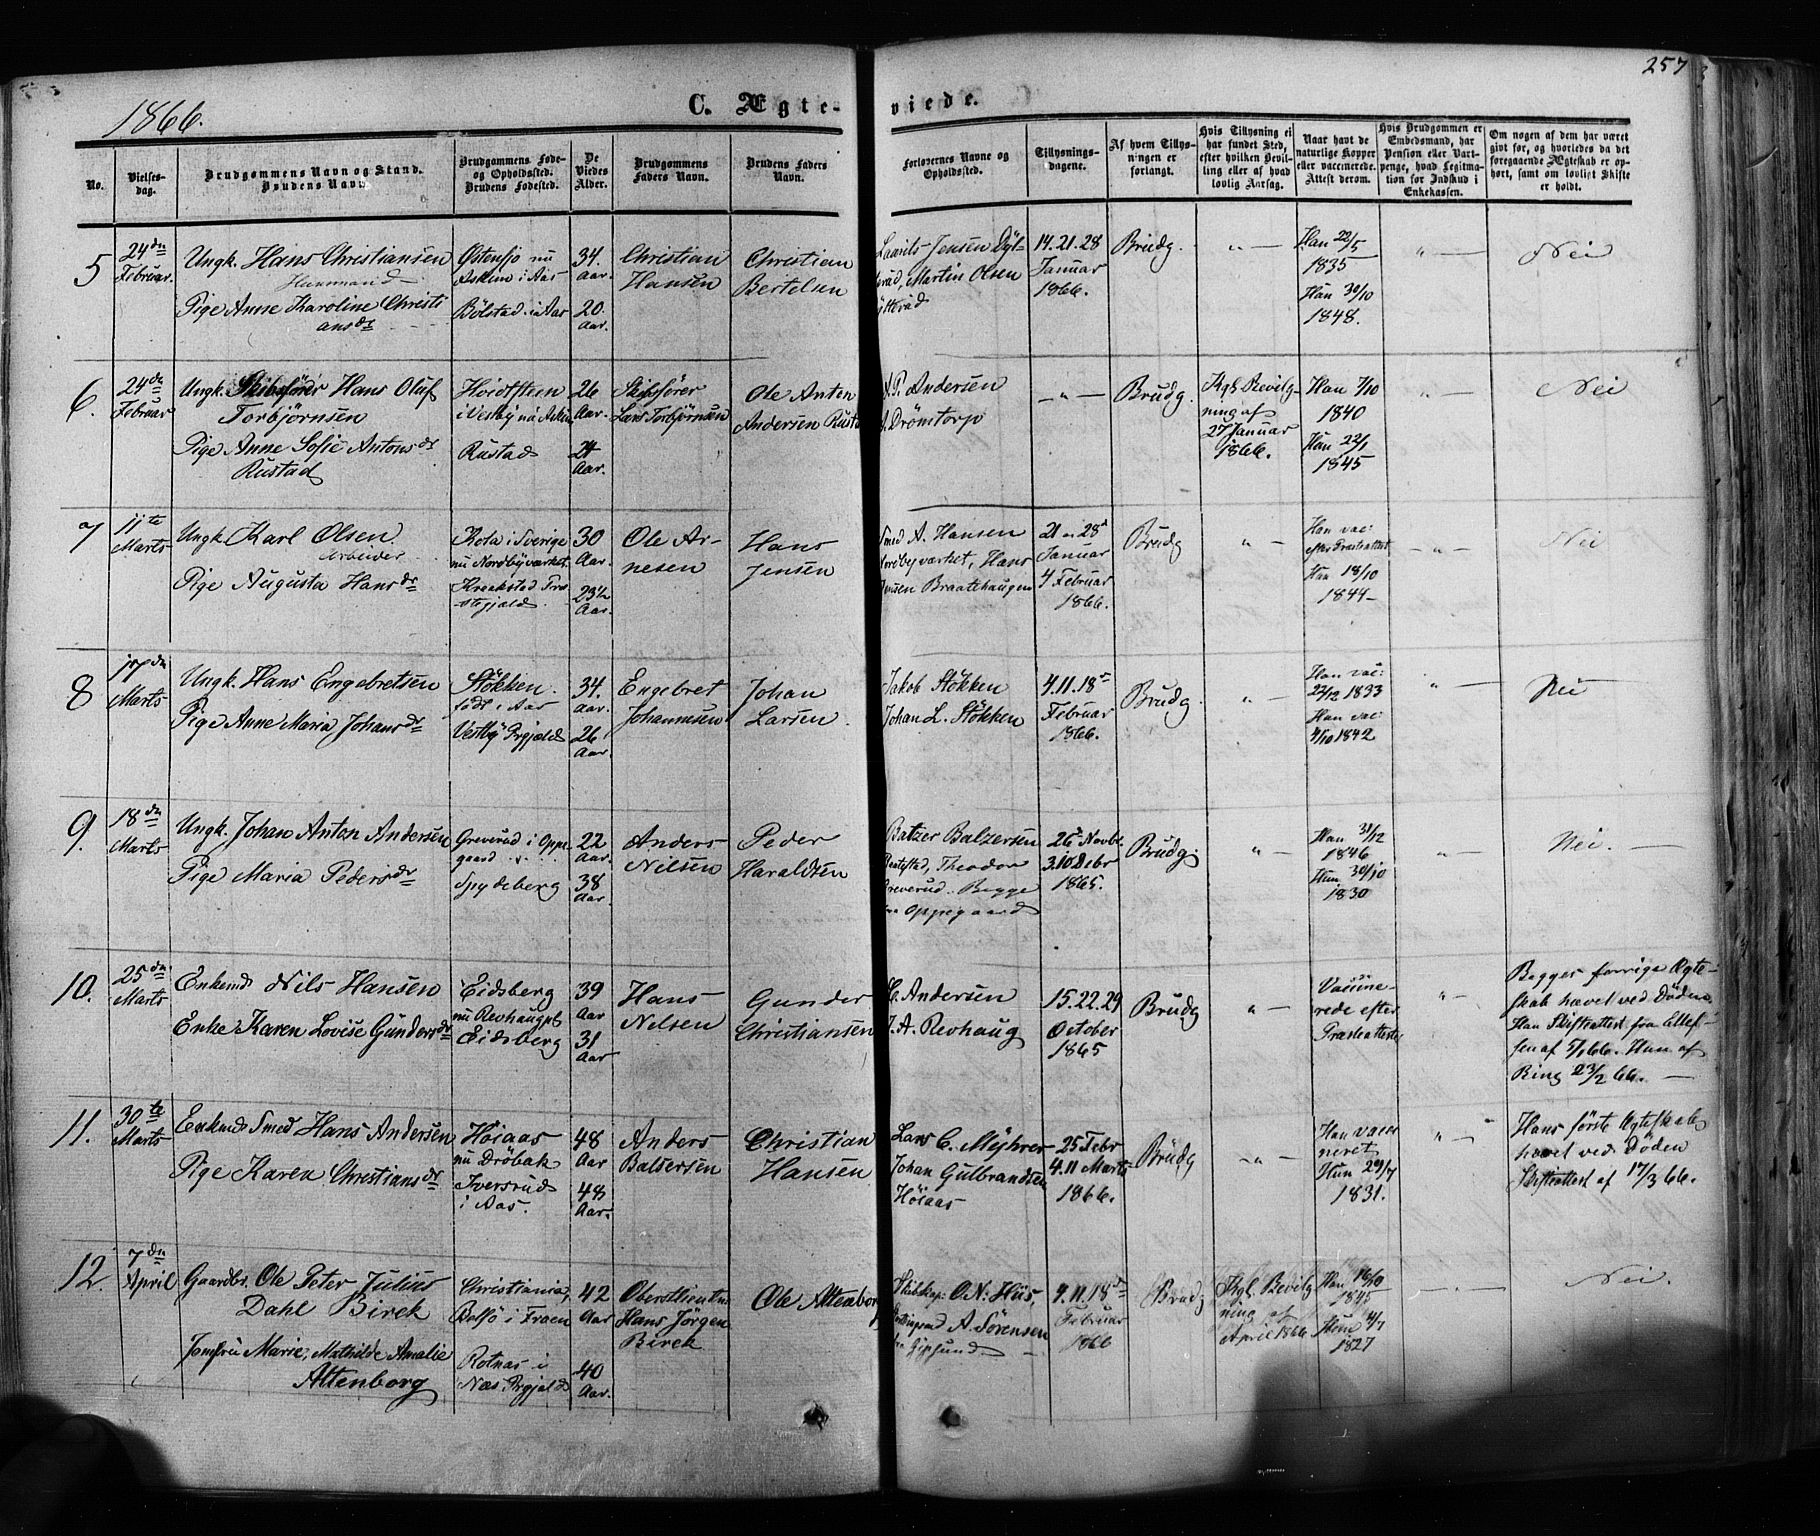 257
1866.
C. Ægte- viede.
No.
Vielses-
dag.
Brudgommens Navn og Stand.
Brudens Navn.
Brudgommens Føde-
og Opholdssted.
Brudens Fødested.
De
Viedes
Alder.
Brudgommens
Faders Navn.
Brudens Faders
Navn.
Forlovernes Navne og
Opholdssted.
Tillysnings-
dagene.
Af hvem Tillys-
ningen er
forlangt.
Hvis Tillysning ei
har fundet Sted,
efter hvilken Bevil-
ling eller af hvad
lovlig Aarsag.
Naar havt de
naturlige Kopper
eller vaccinerede.
Attest derom.
Hvis Brudgommen er
Embedsmand, har
Pension eller Vart-
penge, hvad Legitima-
tion for Indskud i
Enkekassen.
Om nogen af dem har været
gift før, og hvorledes da det
foregaaende Ægteskab er op-
hørt, samt om lovligt Skifte
er holdt.
5
24dn
Februar.
Ungk. Hans Christiansen
Huusmand
Pige Anne Karoline Christi
ansdr
Østensjø nu
Askim i Aas
Bølstad i Aas
34.
Aar.
20.
Aar.
Christian
Hansen
Christian
Bertelsen
Laurits Jensen
Martin Olsen
14. 21. 28
Januar
1866.
Brudg.
" —
Han 22/5
1835
Hun 30/10
1848.
" —
Nei
6.
24dn
Februar
Ungk. Skibsfører Hans Oluf
Torbjørnsen
Pige Anne Sofie Antonsdr
Rustad
Hvidtsteen
i Vestby nu Askim
Rustad
26
Aar.
21
Aar.
Skibsfører
Lars Torbjørnsen
Ole Anton
Andersen Rustad
A. P. Andersen
A. Drømtorp
— " —
Brudg.
Kgl. Bevilg-
ning af
27 Januar
1866.
Han 7/10
1840
Hun 22/1
1845
Nei
7
11te
Marts
Ungk. Karl Olsen
Arbeider
Pige Augusta Hansdr
Kola i Sverige
nu Nordbyværket
Kraakstad Præ-
stegjeld
30
Aar.
23½
Aar.
Ole Ar-
nesen
Hans
Jensen
Smed A. Hansen
Nordbyværket, Hans
Jensen Braatehaugen
21 - 28
Januar
4 Februar
1866.
Brudg
" —
Han vac:
efter Præsteattest
Hun 18/10
1844 –
— " —
Nei
8
17dn
Marts
Ungk. Hans Engebretsen
Pige Anne Maria Johansdr
Støkken.
født i Aas
Vestby Prgjeld
34.
Aar.
26
Aar
Engebret
Johannesen
Johan
Larsen
Jakob Støkken
Johan L. Støkken
4. 11. 18
Februar
1866.
Brudg
" —
Han vac:
22/12 1833
Hun vac:
4/10 1842
" —
Nei
9.
18dn
Marts
Ungk. Johan Anton Andersen
Pige Maria Pedersdr
Greverud i Oppe-
gaard
Spydeberg
22
Aar.
38
Aar.
Anders
Nilsen
Peder
Haraldsen
Batzer Balzersen
Theodor
Greverud. Begge
fra Oppegaard
26 Novbr
3. 10 Debr
1865.
Brudg.
" —
Han 31/12
1846
Hun 30/10
1830
" —
Nei. —
10.
25dn
Marts
Enkemd Nils Hansen
Enke Karen Lovise Gundersdr
Eidsberg
nu Revhaugpl.
Eidsberg
39
Aar
31
Aar
Hans
Nilsen
Gunder
Christiansen
C. Andersen
J. A. Revhaug
15. 22. 29
October
1865
Brudg
" —
Vaccine-
rede efter
Præsteattester
" —
Begges forrige Ægte-
skab hævet ved Døden.
Han Skifteattest fra Ellef-
sen af 5/1 66. Hun af
Bing 23/2 66. —
11.
30te
Marts
Enkemd Smed Hans Andersen
Pige Karen Christiansdr
Høiaas
nu Drøbak
Iversrud
i Aas.
48
Aar
48
Aar.
Anders
Baltsersen
Christian
Hansen
Lars C. Myhrer
Johan Gulbrandsen
Høiaas
25 Febr
4. 11 Marts
1866
Brudg
— " —
Han vacci
neret
Hun 29/7
1831.
" —
Hans første Ægteskab
hævet ved Døden
Skifteattest af 17/3 66.
12.
7dn
April
Gaardbr. Ole Peter Julius
Dahl Birck
Jomfru Marie, Mathilde Amalie
Altenborg
Christiania,
Belsjø i Fraen
Rotnæs i
Næs. Prgjeld
42
Aar
40
Aar.
Oberstlieutn
Hans Jørgen
Birck
Ole Altenborg
Skibskap: O. N. Hiis,
A. Sørensen
4. 11. 18de
Februar
1866
Brudg
Kgl. Bevilg
ning af
April 1866
Han 16/10
1845
Hun 4/7
1827
— " —
Nei.